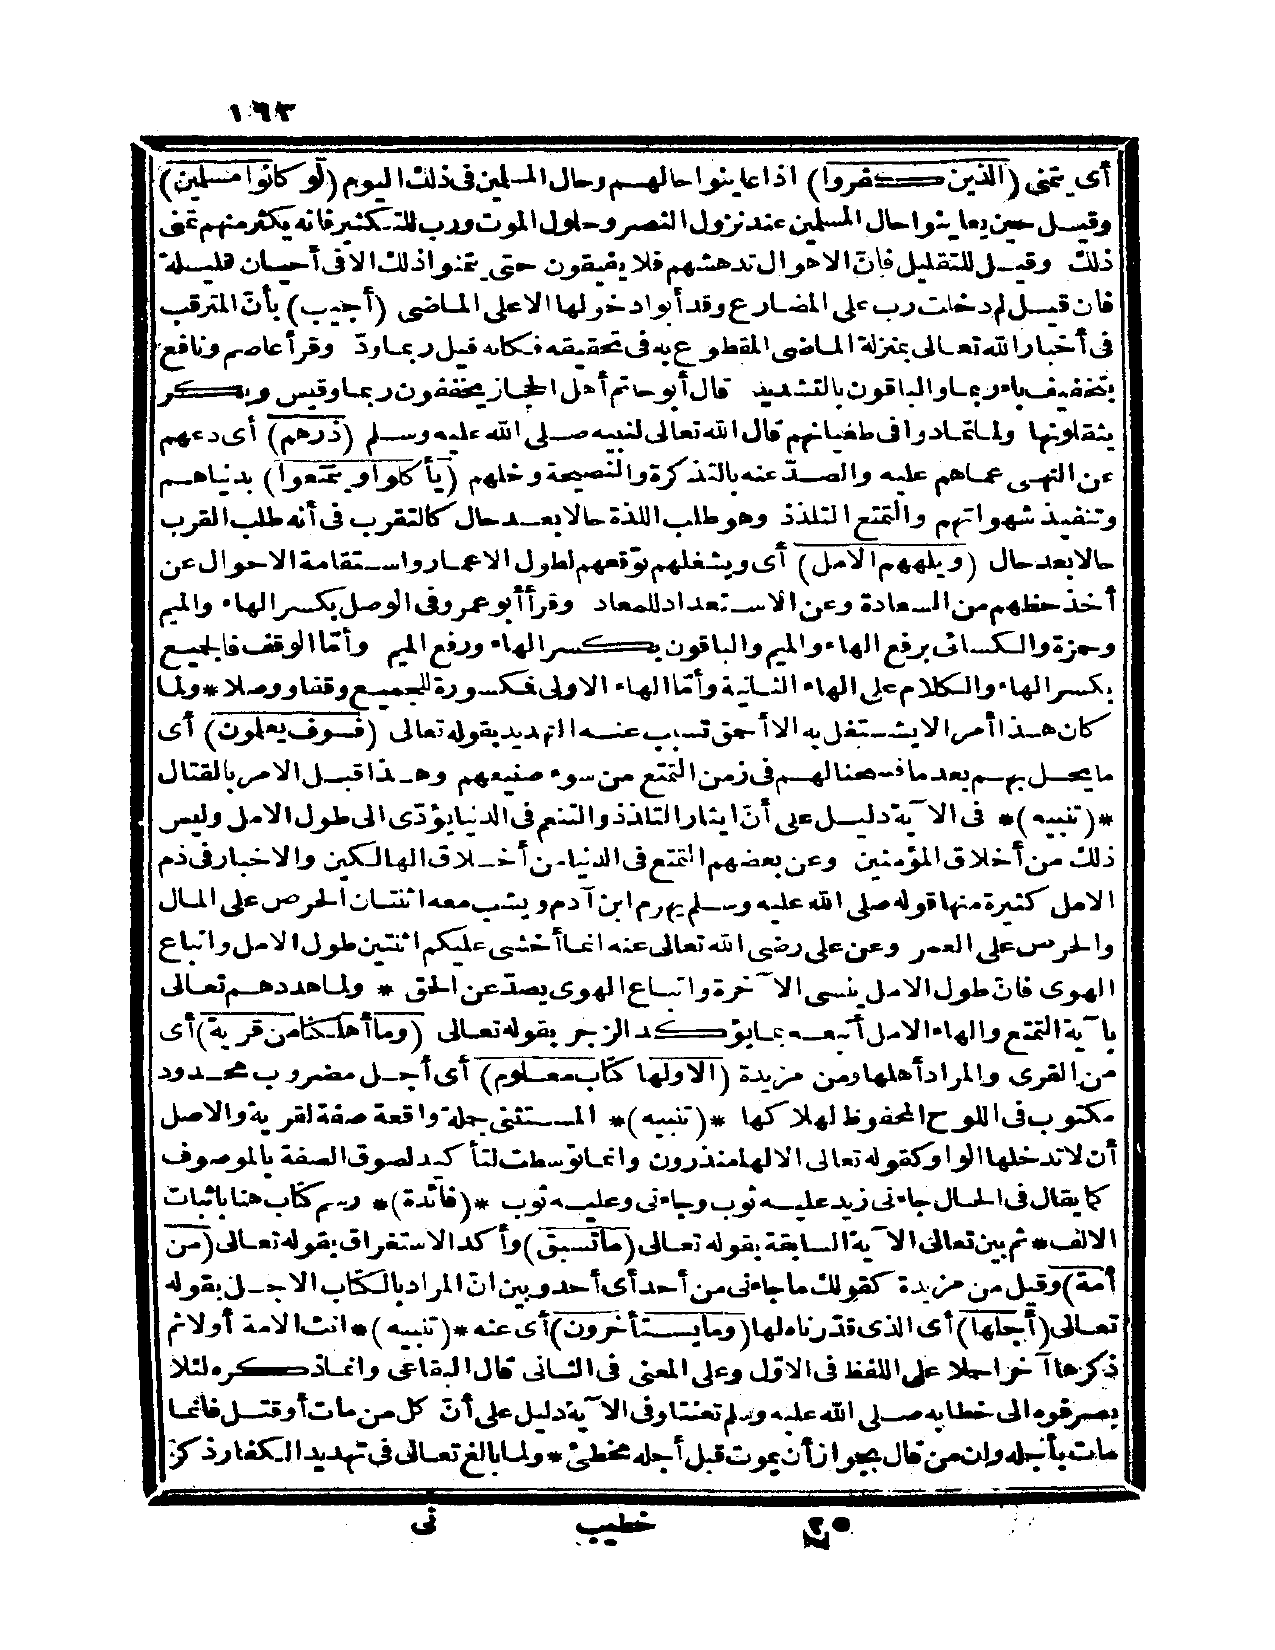 ١٩٣
أى يتمنى (الذين كفروا) اذا عاينوا حالهم وحال المسلمين فى ذلك اليوم (لو كانوا مسلمين)
وقيل حين يعاينوا حال المسلمين عند نزول النصر وحلول الموت ورب للتكثير فانه يكثر منهم تمنى
ذلك وقيل للتقليل فانّ الاهوال تدهشهم فلا يفيقون حتى يتمنوا ذلك الا فى أحيان قليلة
فان قيل لم دخلت رب على المضارع وقد أبوا دخولها الا على الماضى (أجيب) بأنّ المترقب
فى أخبار الله تعالى بمنزلة الماضى المقطوع به فى تحقيقه فكانه قيل ربما ودّ وقرأ عاصم ونافع
بتخفيف باء ربما والباقون بالتشديد قال أبو حاتم أهل الحجاز يخففون ربما وقيس وبكر
يثقلونها ولما تمادوا فى طغيانهم قال الله تعالى لنبيه صلى الله عليه وسلم (ذرهم) أى دعهم
عن النهى عماهم عليه والصدّ عنه بالتذكرة والنصيحة وخلهم (يأكلوا ويتمتعوا) بدنياهم
وتنفيذ شهواتهم والتمتع التلذذ وهو طلب اللذة حالا بعد حال كالتقرب فى أنه طلب القرب
حالا بعد حال (ويلههم الامل) أى ويشغلهم توقعهم لطول الاعمار واستقامة الاحوال عن
أخذ حظهم من السعادة وعن الاستعداد للمعاد وقرأ أبو عمرو فى الوصل بكسر الهاء والميم
وحمزة والكسائى برفع الهاء والميم والباقون بكسر الهاء ورفع الميم وأمّا الوقف فالجميع
بكسر الهاء والكلام على الهاء الثانية وأمّا الهاء الاولى فمكسورة للجميع وقفا ووصلا * ولما
كان هذا أمر الا يشتغل به الا أحمق تسبب عنه التهديد بقوله تعالى (فسوف يعلمون) أى
ما يحل بهم بعد ما فسحنا لهم فى زمن التمتع من سوء صنيعهم وهذا قبل الامر بالقتال
*(تنبيه)* فى الآية دليل على أنّ ايثار التلذذ والتنعم فى الدنيا يؤدّى الى طول الامل وليس
ذلك من أخلاق المؤمنين وعن بعضهم التمتع فى الدنيا من أخلاق الهالكين والاخبار فى ذم
الامل كثيرة منها قوله صلى الله عليه وسلم يهرم ابن آدم ويشب معه اثنتان الحرص على المال
والحرص على العمر وعن على رضى الله تعالى عنه انما أخشى عليكم اثنتين طول الامل واتباع
الهوى فانّ طول الامل ينسى الآخرة واتباع الهوى يصدّ عن الحق * ولما هددهم تعالى
بآية التمتع والهاء الامل أتبعه بما يؤكد الزجر بقوله تعالى (وما أهلكنا من قرية) أى
من القرى والمراد أهلها ومن مزيدة (الا ولها كتاب معلوم) أى أجل مضروب محدود
مكتوب فى اللوح المحفوظ لهلاكها *(تنبيه)* المستثنى جملة واقعة صفة لقرية والاصل
أن لا تدخلها الواو كقوله تعالى الا لها منذرون وانما توسطت لتأكيد لصوق الصفة بالموصوف
كما يقال فى الحال جاءنى زيد عليه ثوب وجاءنى وعليه ثوب *(فائدة)* رسم كتاب هنا باثبات
الالف * ثم بين تعالى الآية السابقة بقوله تعالى (ما تسبق) وأكد الاستغراق بقوله تعالى (من
أمة) وقيل من مزيدة كقولك ما جاءنى من أحد أى أحد وبين انّ المراد بالكتاب الاجل بقوله
تعالى (أجلها) أى الذى قدّرناه لها (وما يستأخرون) أى عنه *(تنبيه)* انث الامة أولا ثم
ذكرها آخرا حملا على اللفظ فى الاوّل وعلى المعنى فى الثانى قال البقاعى وانما ذكره لئلا
يصرفوه الى خطابه صلى الله عليه وسلم تعنتا وفى الآية دليل على أنّ كل من مات أو قتل فانما
مات بأجله وان من قال يجوز أن يموت قبل أجله مخطئ * ولما بالغ تعالى فى تهديد الكفار ذكر
٢٥ خطيب نى